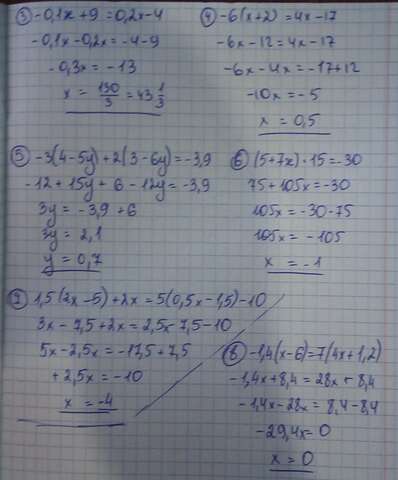 ③ -0,1x + 9 = 0,2x - 4
-0,1x - 0,2x = -4 - 9
-0,3x = -13
x = 130/3 = 43 1/3
④ -6(x+2) = 4x - 17
-6x - 12 = 4x - 17
-6x - 4x = -17 + 12
-10x = -5
x = 0,5
⑤ -3(4-5y) + 2(3-6y) = -3,9
-12 + 15y + 6 - 12y = -3,9
3y = -3,9 + 6
3y = 2,1
y = 0,7
⑥ (5+7x)·15 = -30
75 + 105x = -30
105x = -30 - 75
105x = -105
x = -1
⑦ 1,5(2x-5) + 2x = 5(0,5x-1,5) - 10
3x - 7,5 + 2x = 2,5x - 7,5 - 10
5x - 2,5x = -17,5 + 7,5
+ 2,5x = -10
x = -4
⑧ -1,4(x-6) = 7(4x+1,2)
-1,4x + 8,4 = 28x + 8,4
-1,4x - 28x = 8,4 - 8,4
-29,4x = 0
x = 0